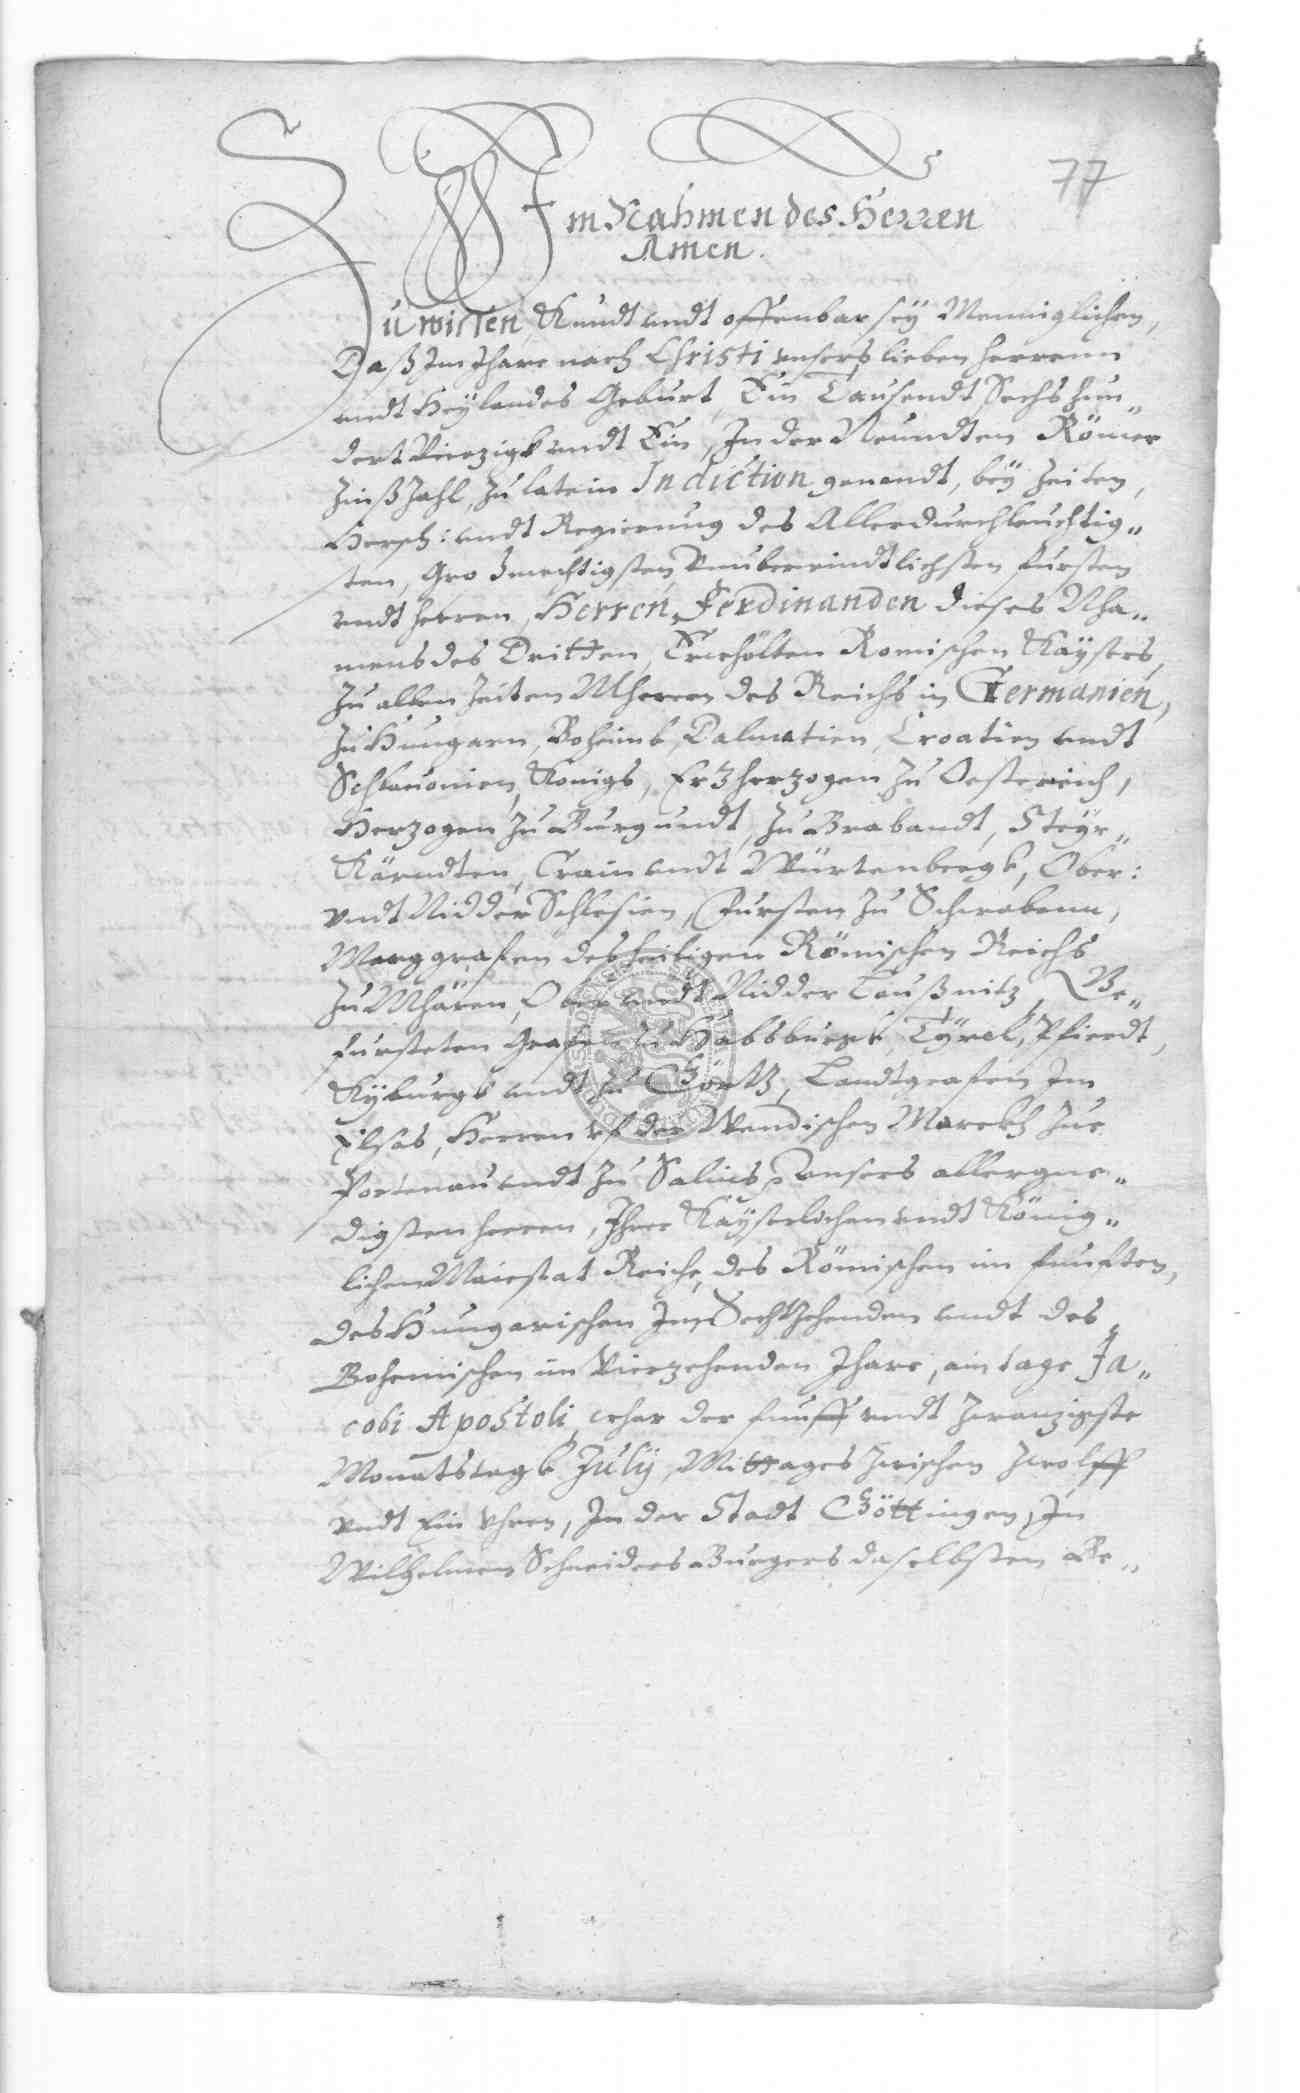 77
Im Nahmen des Herren
Amen.
Zu wissen, Kundt undt offenbar sey Menniglichen,
Daß Im Jhare nach Christi unsers lieben Herrenn
undt Heylandes Geburt, Ein Tausendt Sechs hun„
dert Vierzigk undt Ein, In der Neundten Römer
Zinß Zahl, Zu latein Indiction genandt, bey Zeiten,
Hersch: undt Regierung des Allerdurchleuchtig„
sten, Großmechtigsten, Unuberwindtlichsten Fursten
undt Herren, Herren Ferdinanden dieses Nha„
mens des Dritten, Erwehlten Romischen Kaysers,
Zu allen Zeiten Mherern des Reichs in Germanien,
Zu Hungarn, Boheimb, Dalmatien, Croatien undt
Schlauonien, Konigs, Ertzherzogen zu Oesterreich,
Herzogen Zu Burgundt, Zu Brabandt, Steyr„
Kärndten, Crain undt Würtenbergk, Ober:
undt Nidder Schlesien, Fursten Zu Schwabenn,
Marggrafen des heiligen Römischen Reichs
Zu Mhären, Ober undt Nidder Laußnitz, Ge„
fursteten Grafen zu Habsburgk, Tyrol, Pfierdt,
Kyburgk undt zu Görtz, Landtgrafen Im
Elsas, Herren uf der Wendischen Marckh Zue
Portenau undt Zu Salins, unsers allergne„
digsten Herren, Ihrer Kayserlichen undt König„
lichen Maiestat Reiche, des Römischen im funften,
des Hungarischen Im Sechtzehenden undt des
Bohemischen im Vierzehenden Jhare, am tage Ja„
cobi Apostoli, wehar der funff undt Zwanzigste
Monatstagk July, Mittages Zwischen Zwolff
undt Ein Uhren, In der Stadt Göttingen, In
Wilhelmen Schneiders Burgers daselbsten Be„